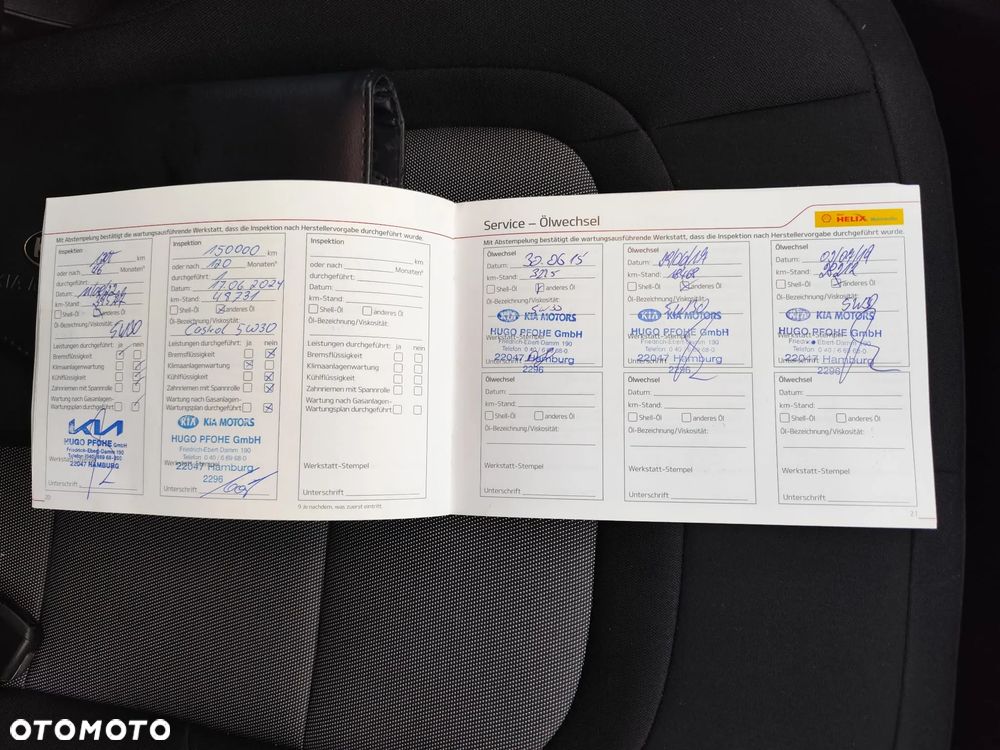 Mit Abstempelung bestätigt die wartungsausführende Werkstatt, dass die Inspektion nach Herstellervorgabe durchgeführt wurde.
Inspektion
km
oder nach
96 Monaten⁹
durchgeführt:
Datum:
km-Stand
Shell-Öl anderes Öl
Öl-Bezeichnung/Viskosität:
5W30
Leistungen durchgeführt: ja nein
Bremsflüssigkeit
Klimaanlagenwartung
Kühlflüssigkeit
Zahnriemen mit Spannrolle
Wartung nach Gasanlagen-
Wartungsplan durchgeführt
KIA
HUGO PFOHE GmbH
Friedrich-Ebert-Damm 190
22047 HAMBURG
Werkstatt-Stempel
Unterschrift
20
Inspektion
150000 km
oder nach
120 Monaten⁹
durchgeführt:
Datum: 17.06.2024
km-Stand: 48231
Shell-Öl anderes Öl
Öl-Bezeichnung/Viskosität:
5W30
Leistungen durchgeführt: ja nein
Bremsflüssigkeit
Klimaanlagenwartung
Kühlflüssigkeit
Zahnriemen mit Spannrolle
Wartung nach Gasanlagen-
Wartungsplan durchgeführt
KIA KIA MOTORS
HUGO PFOHE GmbH
Friedrich-Ebert Damm 190
Telefon 0 40 / 6 69 68-0
22047 Hamburg
2296
Werkstatt-Stempel
Unterschrift
Inspektion
km
oder nach
Monaten⁹
durchgeführt:
Datum:
km-Stand:
Shell-Öl anderes Öl
Öl-Bezeichnung/Viskosität:
Leistungen durchgeführt: ja nein
Bremsflüssigkeit
Klimaanlagenwartung
Kühlflüssigkeit
Zahnriemen mit Spannrolle
Wartung nach Gasanlagen-
Wartungsplan durchgeführt
Werkstatt-Stempel
Unterschrift
9 Je nachdem, was zuerst eintritt
Service – Ölwechsel
HELIX
Mit Abstempelung bestätigt die wartungsausführende Werkstatt, dass die Inspektion nach Herstellervorgabe durchgeführt wurde.
Ölwechsel
Datum:
km-Stand:
Shell-Öl anderes Öl
Öl-Bezeichnung/Viskosität:
5W30
KIA KIA MOTORS
HUGO PFOHE GmbH
Friedrich-Ebert-Damm 190
Telefon 0 40 / 6 69 68-0
22047 Hamburg
2296
Werkstatt-Stempel
Unterschrift
Ölwechsel
Datum:
km-Stand:
Shell-Öl anderes Öl
Öl-Bezeichnung/Viskosität:
KIA KIA MOTORS
HUGO PFOHE GmbH
Friedrich-Ebert-Damm 190
Telefon 0 40 / 6 69 68-0
22047 Hamburg
2296
Werkstatt-Stempel
Unterschrift
Ölwechsel
Datum:
km-Stand:
Shell-Öl anderes Öl
Öl-Bezeichnung/Viskosität:
5W30
KIA KIA MOTORS
HUGO PFOHE GmbH
Friedrich-Ebert-Damm 190
Telefon 0 40 / 6 69 68-0
22047 Hamburg
2296
Werkstatt-Stempel
Unterschrift
Ölwechsel
Datum:
km-Stand:
Shell-Öl anderes Öl
Öl-Bezeichnung/Viskosität:
Werkstatt-Stempel
Unterschrift
Ölwechsel
Datum:
km-Stand:
Shell-Öl anderes Öl
Öl-Bezeichnung/Viskosität:
Werkstatt-Stempel
Unterschrift
Ölwechsel
Datum:
km-Stand:
Shell-Öl anderes Öl
Öl-Bezeichnung/Viskosität:
Werkstatt-Stempel
Unterschrift
21
OTOMOTO